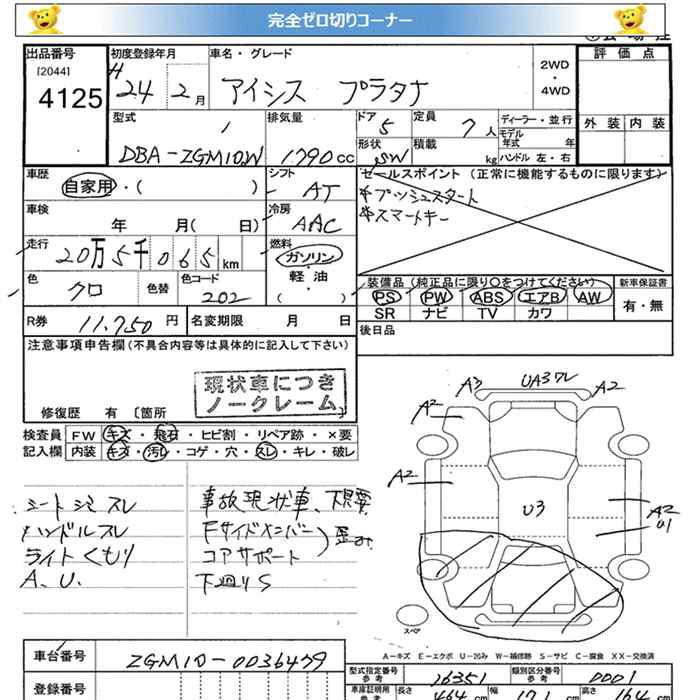 完全ゼロ切りコーナー
出品番号 初度登録年月 車名・グレード 2WD・4WD 評価点
[2044]
4125 H 24 2月 アイシス プラタナ
外装 内装
型式 排気量 ドア 5 定員 7人 ディーラー・並行
DBA-ZGM10W 1790cc 形状 SW 積載 kg モデル年式 年
ハンドル 左・右
車歴 自家用・( ) シフト AT セールスポイント (正常に機能するものに限ります)
*プッシュスタート
*スマートキー
車検 年 月( 日) 冷房 AAC
走行 20万5千065km 燃料 ガソリン・軽油 ( )
色 クロ 色替 色コード 202
装備品(純正品に限り○をつけてください) 新車保証書
PS PW ABS エアB AW 有・無
SR ナビ TV カワ
R券 11,750円 名変期限 月 日 後日品
注意事項申告欄(不具合内容等は具体的に記入して下さい)
現状車につき
ノークレーム
修復歴 有 〔箇所
検査員 FW キズ・飛石・ヒビ割・リペア跡・×要
記入欄 内装 キズ・汚レ・コゲ・穴・スレ・キレ・破レ
シートシミスレ
ハンドルスレ
ライトくもり
A、U.
事故現状車、下見要
Fサイドメンバー
コアサポート
歪み
下廻りS
A3 UA3ワレ A2
A2
A2
U3
A2
U1
スペア
A-キズ E-エクボ U-凹み W-補修跡 S-サビ C-腐食 XX-交換済
車台番号 ZGM10-0036479
登録番号
型式指定番号 参考 16351 類別区分番号 参考 0001
車庫証明用 参考 長さ 464cm 幅 171cm 高さ 164cm